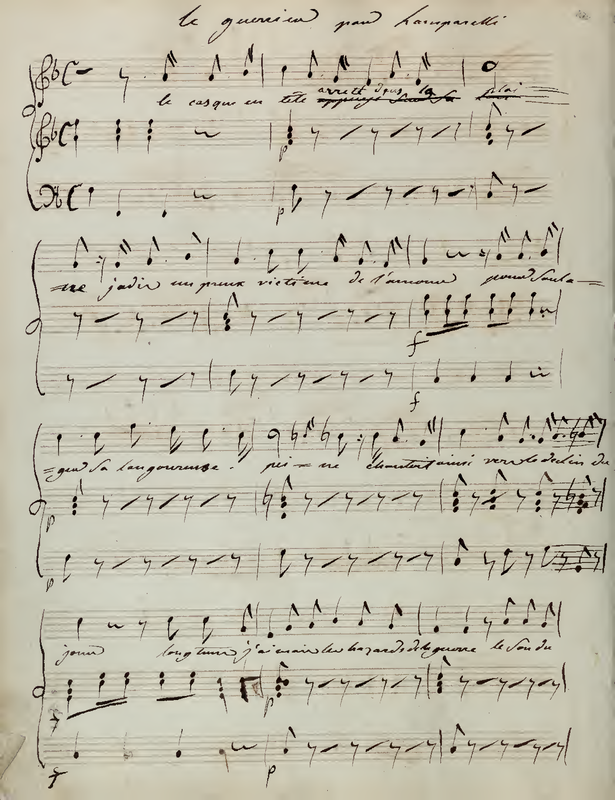 le guerrier par Lamparelli
le casque en tête arrêté dans la plai
p
p
=ne jadis un preux victime de l'amour pour soula=
f
f
=ger sa langoureuse pei=ne chantait ainsi vers le declin du
p
p
jour longtems j'aimais les hazards de la guerre le son du
f p
f p